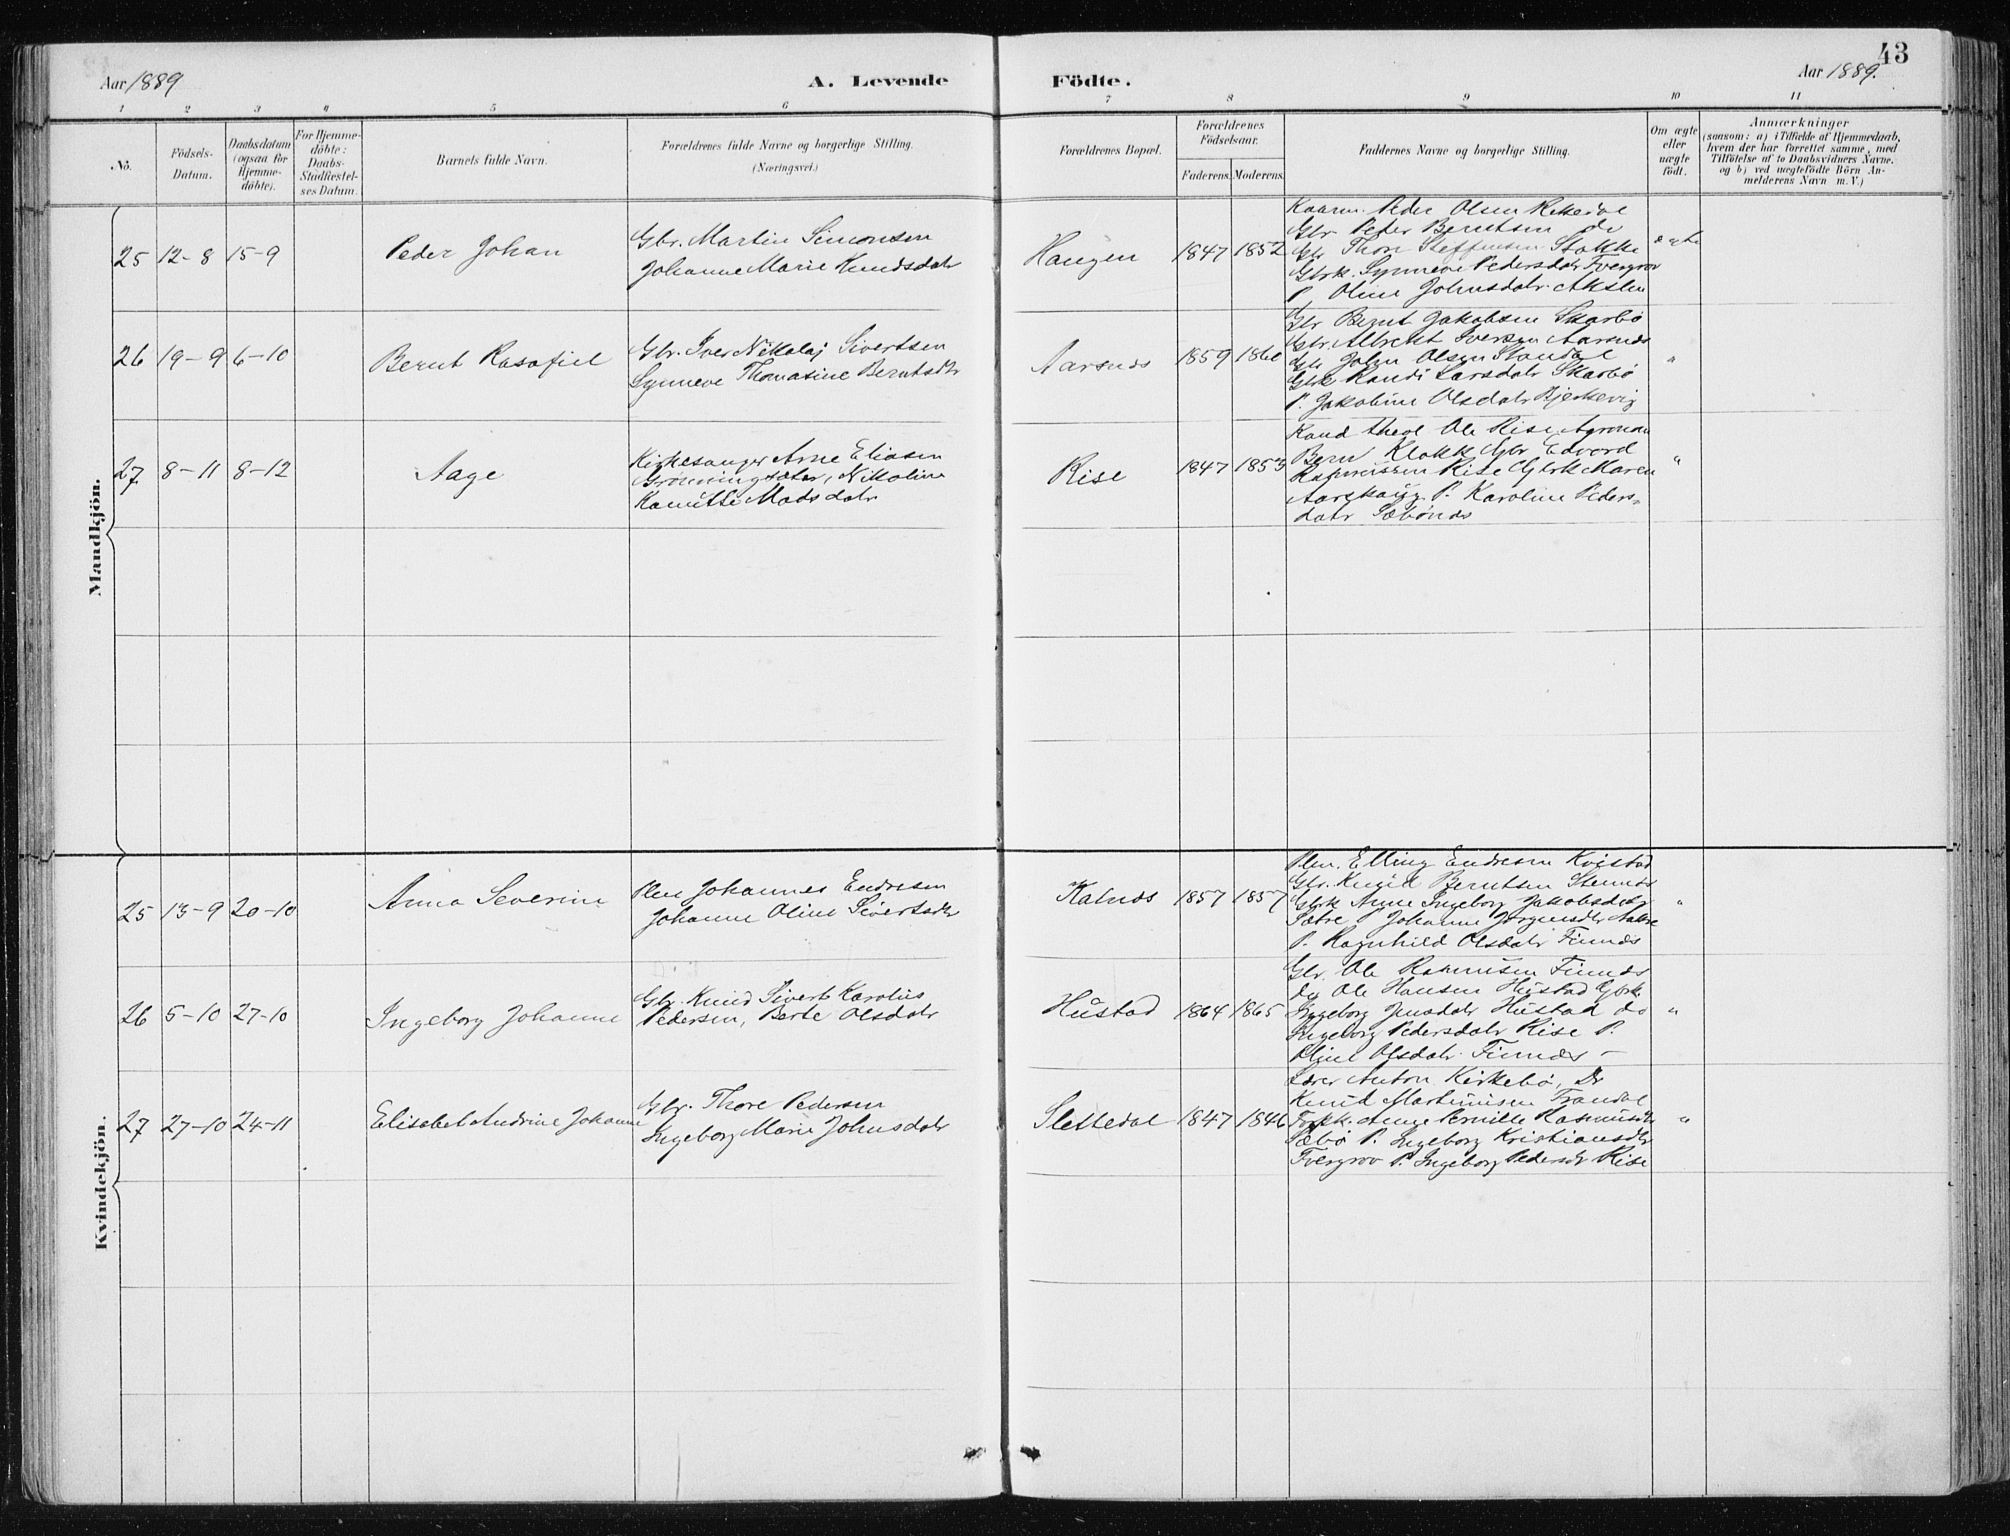 43
Aar 1889
A. Levende
Födte.
Aar 1889.
1 2 3 4 5 6 7 8 9 10 11
No.
Födsels-
Datum.
Daabsdatum
(ogsaa for
Hjemme-
döbte).
For Hjemme-
döbte:
Daabs-
Stadfæstel-
ses Datum.
Barnets fulde Navn.
Forældrenes fulde Navne og borgerlige Stilling.
(Næringsvei.)
Forældrenes Bopæl.
Forældrenes
Födselsaar.
Faderens. Moderens.
Faddernes Navne og borgerlige Stilling.
Om ægte
eller
uægte
födt.
Anmærkninger
(saasom: a) i Tilfælde af Hjemmedaab,
hvem der har forrettet samme, med
Tilföielse af to Daabsvidners Navne.
og b) ved uægtefödte Börn An-
melderens Navn m. V.)
Mandkjön.
25 12-8 15-9
Peder Johan
Gbr. Martin Simonsen
Johanne Marie Knudsdatr
Haugen
1847 1852
Peder Olsen Ritsedal
Gbr Peder Berntsen do
Gbr Thore Steffensen Stokke
Gbrk. Synneve Pedersdatr Tvergrov
P. Oline Johnsdatr Akslen
ægte
26 19-9 6-10
Bernt Rasafiel
Gbr. Iver Nikolaj Sivertsen
Synneve Thomasine Berntsdtr
Aarsnæs
1859 1860
Gbr Bernt Jakobsen Skarbö
Gbr Albrekt Iversen Aarsnæs
Gbr John Olsen Standal
Gbrk Randi Larsdatr Skarbö
P. Jakobine Olsdatr Bjerkevig
"
27 8-11 8-12
Aage
Kirkesanger Arne Eliasen
Grönningsæter, Nikoline
Kamitte Madsdatr
Rise
1847 1853
Kand theol Ole Rise Agronom
Bern Klokk Gbr Edvard
Rasmussen Rise Gbrk Maren
Aarskaug P. Karoline Peders-
datr Sæbönæs
"
Kvindekjön.
25 13-9 20-10
Anna Severine
Johannes Endresen
Johanne Oline Sivertsdtr
Kalnæs
1857 1857
Elling Endresen Kvistad
Gbr. Knud Berntsen Stennæs
Gbrk Anne Ingeborg Jakobsdatr
Sætre P. Johanne Jörgensdtr Aakre
P. Ragnhild Olsdatr Finnæs
"
26 5-10 27-10
Ingeborg Johanne
Gbr. Knud Sivert Karolus
Pedersen, Berte Olsdatr
Hustad
1864 1865
Gbr. Ole Rasmusen Finnæs
do Ole Hansen Hustad Gbrk.
Ingeborg Jensdatr Hustad do
Ingeborg Pedersdatr Rise P.
Oline Olsdatr Finnæs
"
27 27-10 24-11
Elisabet Andrine Johanne
Gbr. Thore Pedersen
Ingeborg Marie Johnsdatr
Slettedal
1847 1846
Lærer Anton Kirkebö, Dr
Knud Martinusen Trandal
Pernille Rasmusdtr
Sæbö P. Ingeborg Kristiansdtr
Tvergrov P. Ingeborg Pedersdtr Rise
"